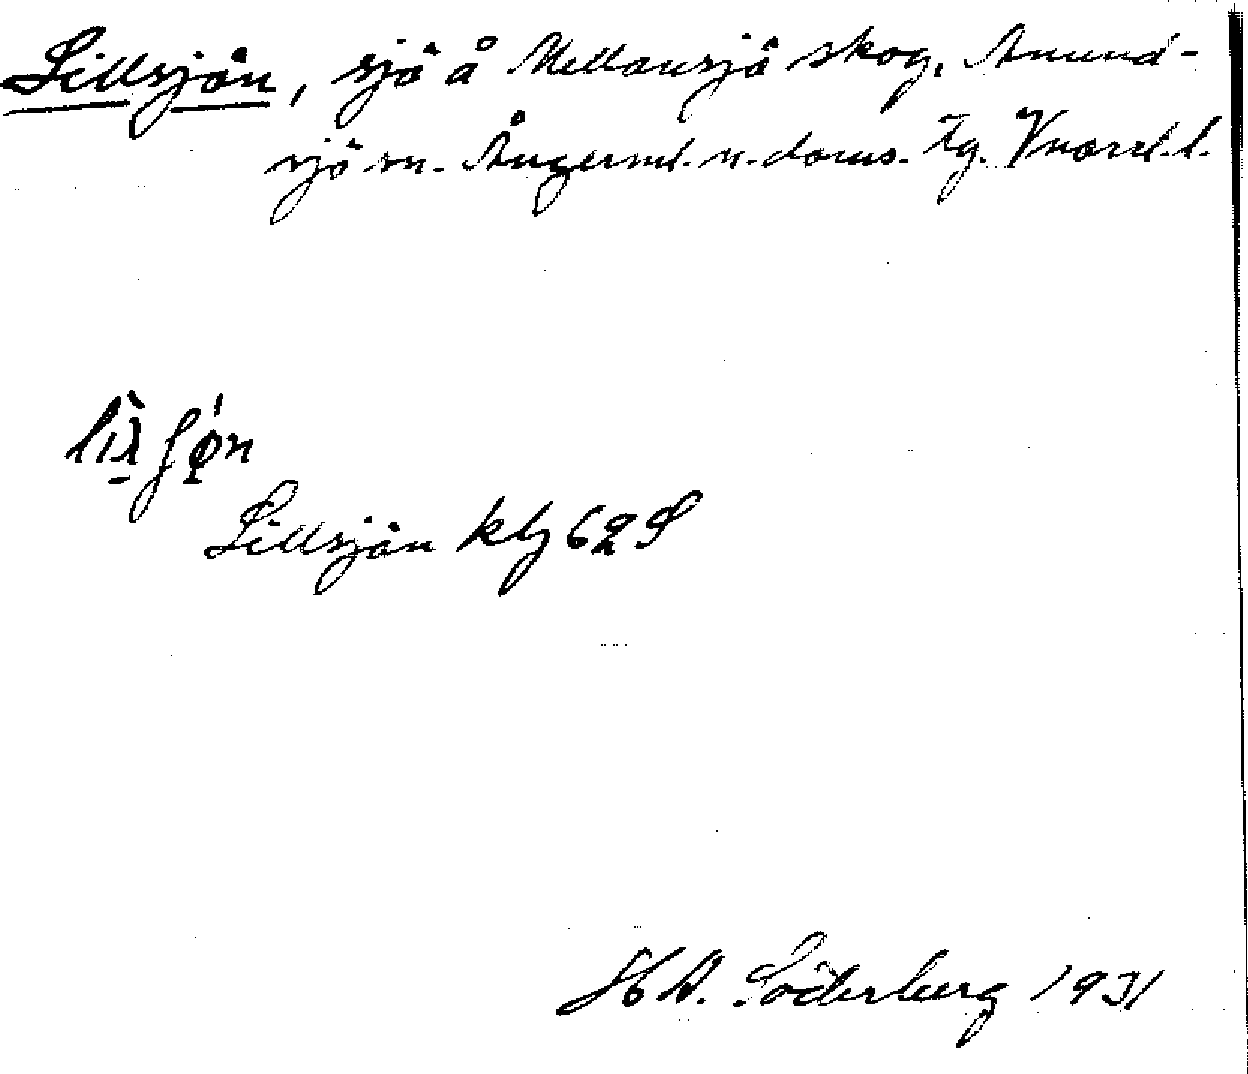 Lillsjön, sjö å Mellansjö skog, Anund-
sjö sn. Ångerml. n. doms. tg. Vnorrl. l.
Lillsjön kbl 62 S
H A. Söderberg 1931